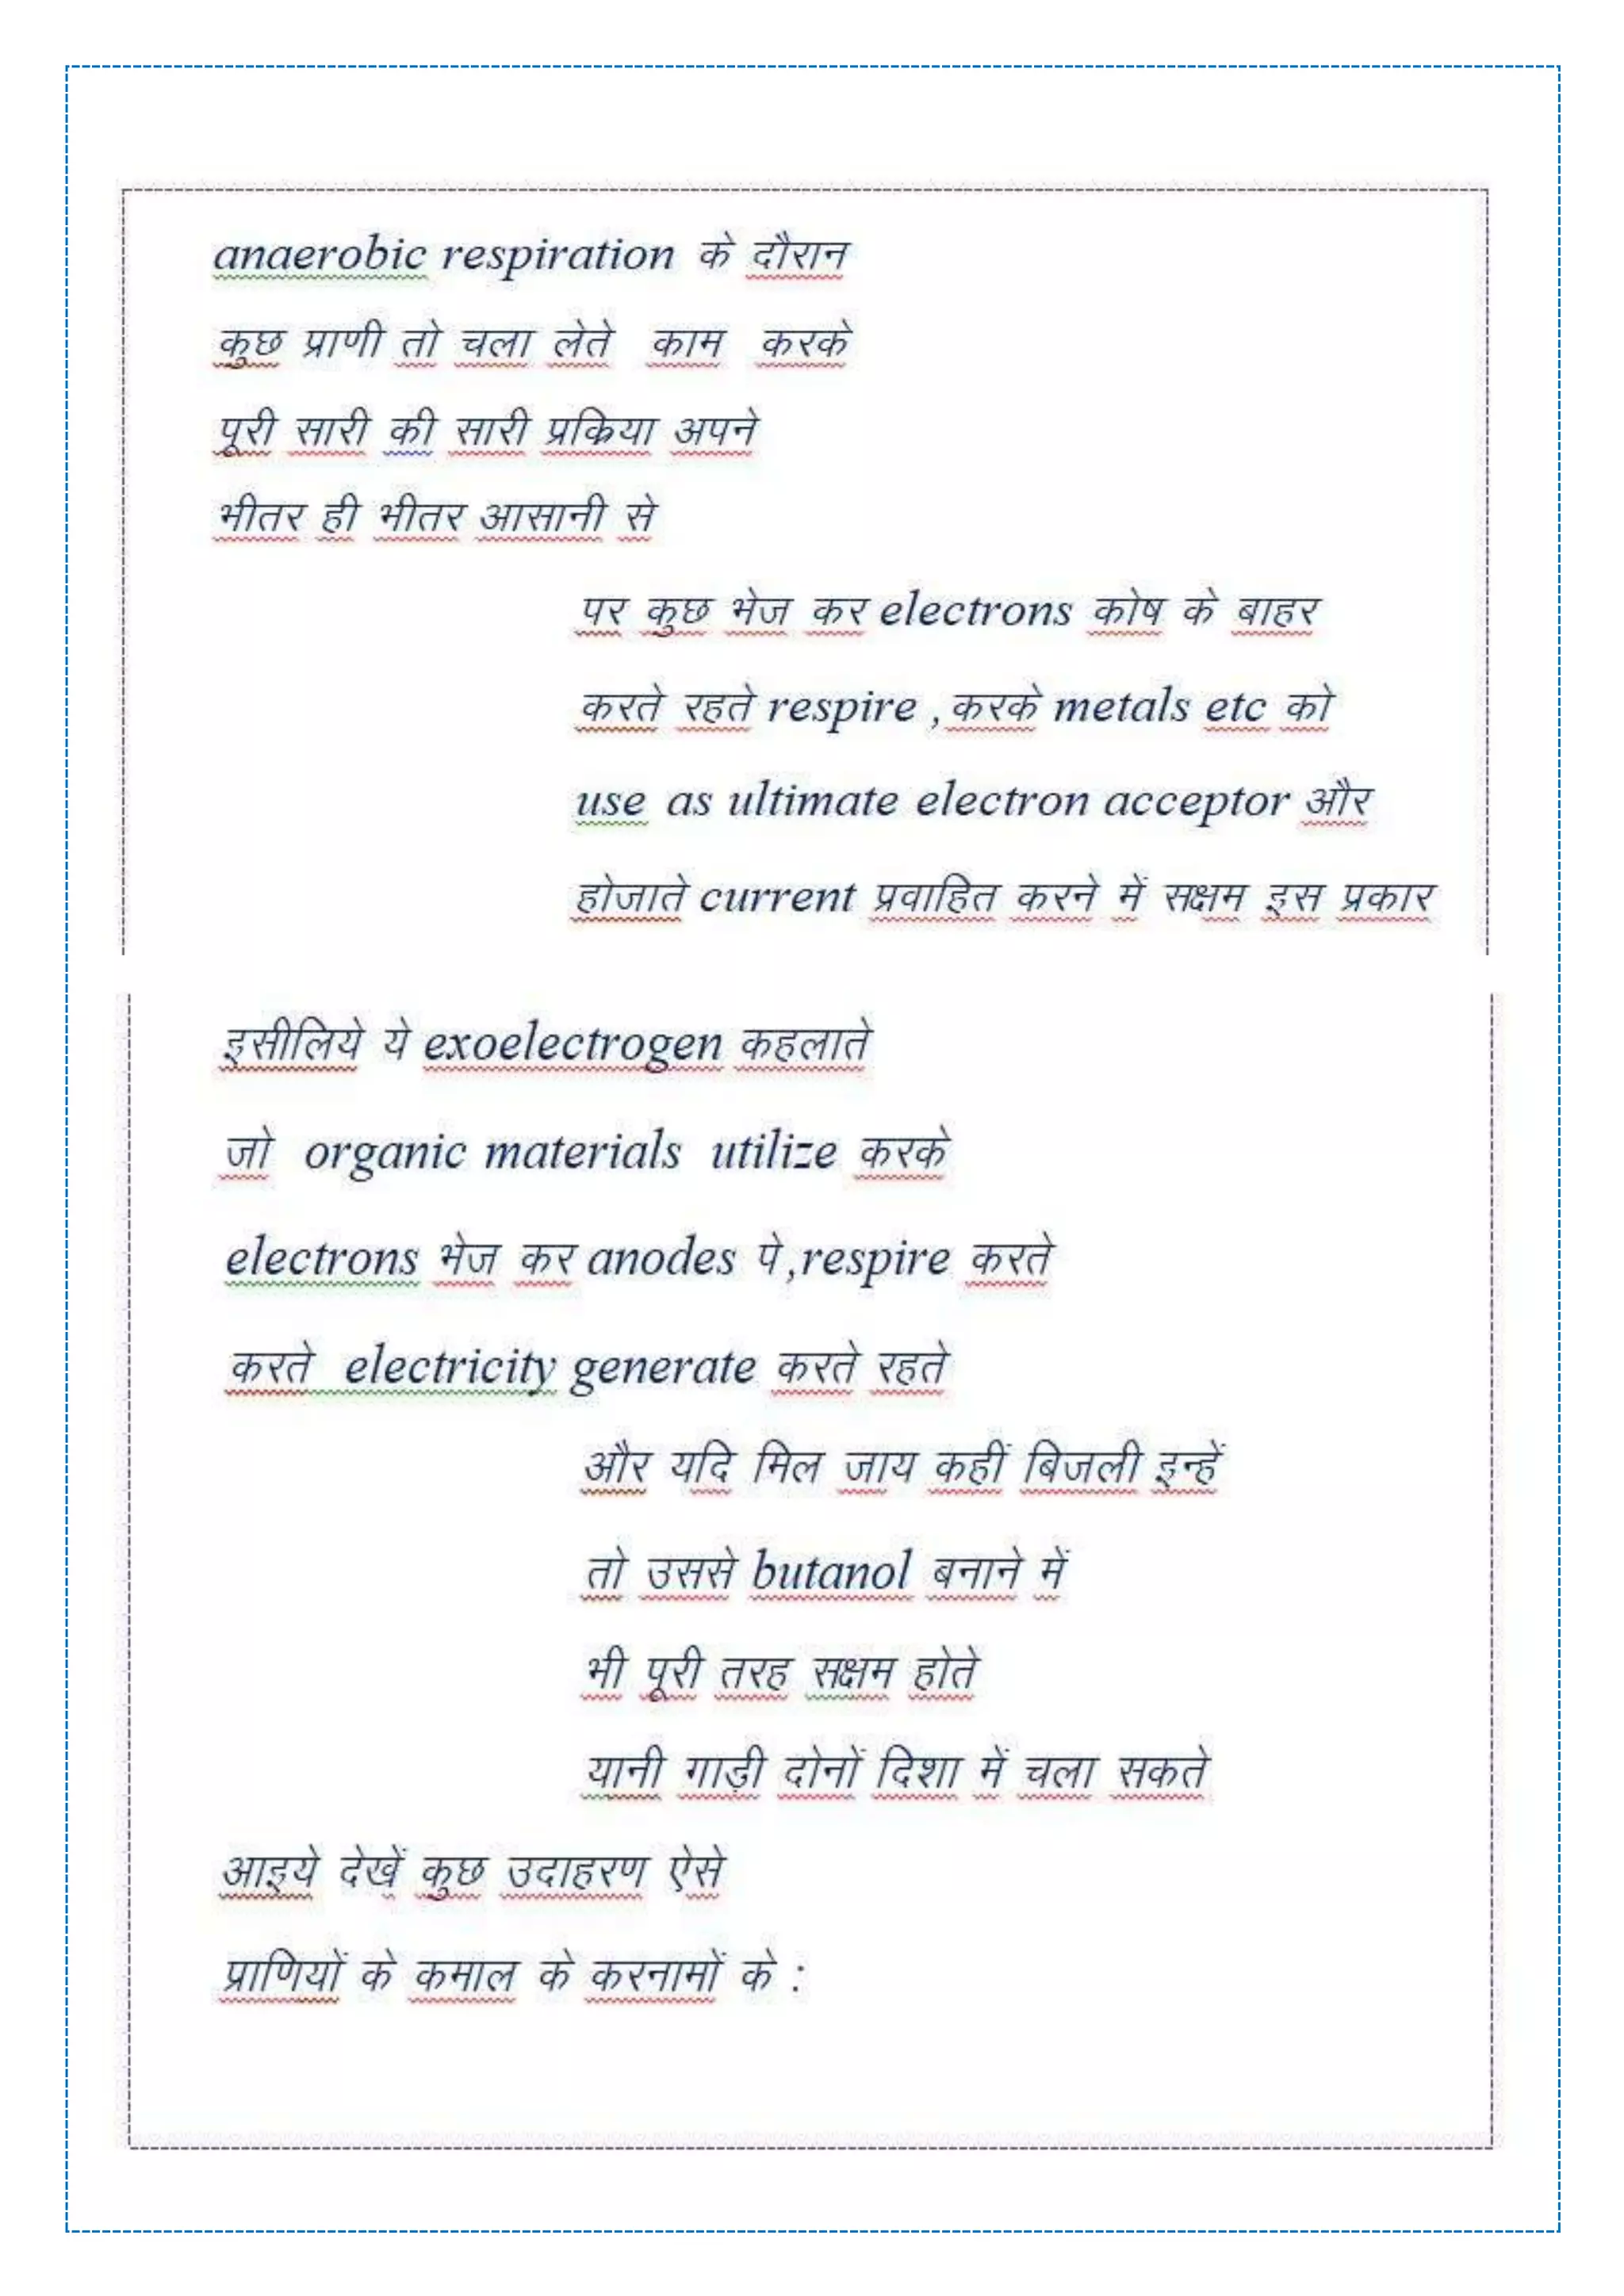 anaerobic respiration के दौरान
कुछ प्राणी तो चला लेते काम करके
पूरी सारी की सारी प्रक्रिया अपने
भीतर ही भीतर आसानी से
पर कुछ भेज कर electrons कोष के बाहर
करते रहते respire ,करके metals etc को
use as ultimate electron acceptor और
होजाते current प्रवाहित करने में सक्षम इस प्रकार
इसीलिये ये exoelectrogen कहलाते
जो organic materials utilize करके
electrons भेज कर anodes पे,respire करते
करते electricity generate करते रहते
और यदि मिल जाय कहीं बिजली इन्हें
तो उससे butanol बनाने में
भी पूरी तरह सक्षम होते
यानी गाड़ी दोनों दिशा में चला सकते
आइये देखें कुछ उदाहरण ऐसे
प्राणियों के कमाल के करनामों के :